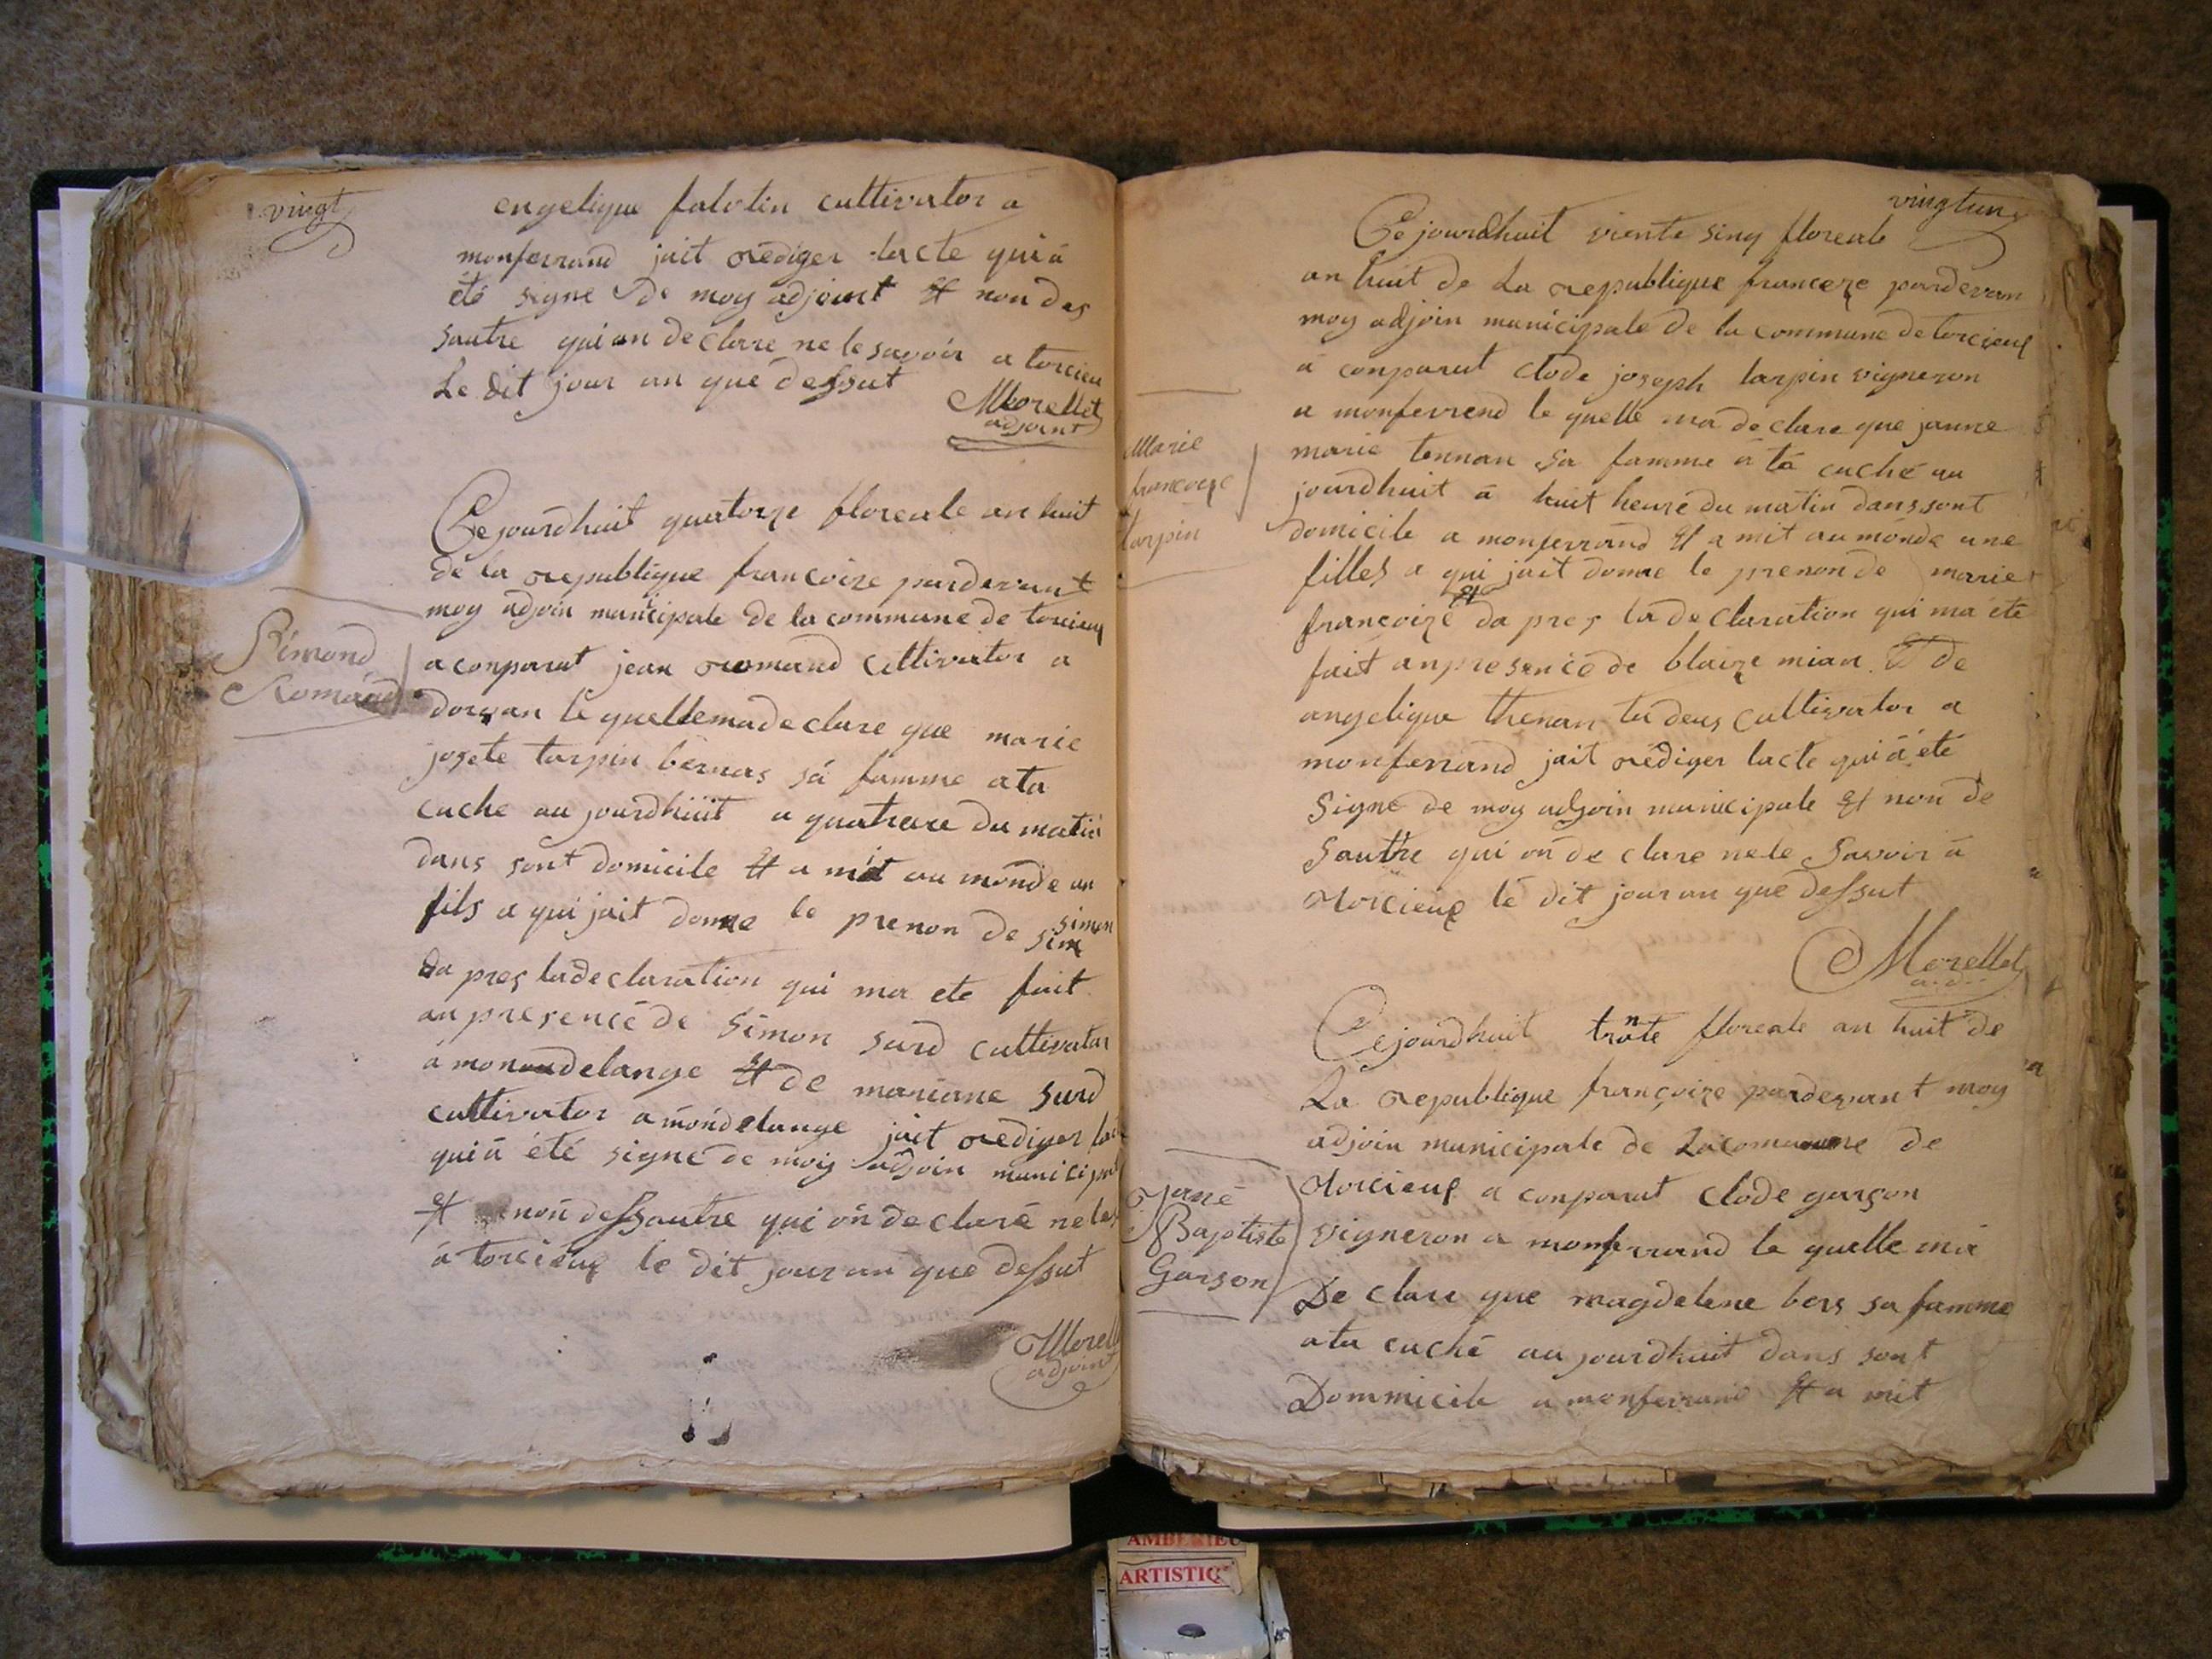 vingt
engelique falotin cultivator a
monferrand jait rédiger lacte qui á
été signe de moy adjoint et non des
sautre qui on de clare ne le savoir a torcieu
Le dit jour an que dessut
Morellet
adjoint
Ce jourdhuit quatorze floreale an huit
de la republique francoize pardevant
moy adjoin municipale de la commune de torcieux
Simond
Romand
a conparut jean romand cultivator a
dorvan le quelle ma de clare que marie
josete tarpin bernas sá famme a ta
cuche au jourdhuit a quatreure du matin
dans sont domicile et a mit au monde un
fils a qui jait donne le prenon de simon
da pres la de claration qui ma ete fait
an presence de Simon surd cultivator
á mondelange et de mariane surd
cultivator a mondelange jait rediger
qui á été signé de moy adjoin municipal
et non dessautre qui on de claré ne le
á torcieux le dit jour an que dessut
Morell
adjoint
vingtun
Ce jourdhuit viente sinq floreale
an huit de La republique franceze pardevan
moy adjoin municipale de la commune de torcieux
á conparut clode joseph tarpin vigneron
a monferrend le quelle ma de clare que janne
Marie
francoize
tarpin
marie tennan sa famme a tá cuché au
jourdhuit á huit heure du matin dans sont
domicile a monferrand et a mit au monde une
filles a qui jait donne le prenon de marie
francoize et da pres la de claration qui ma été
fait an presence de blaize mian et de
angelique thenan tu deus cultivator a
monferrand jait rédiger lacte qui á été
Signé de moy adjoin municipale et non de
Sautre qui on de clare ne le Savoir á
torcieux le dit jour an que dessut
Morellet
a.d.
Ce jourdhuit trante floreale an huit de
La republique françoize pardevant moy
adjoin municipale de La comune de
Jané
Baptiste
Garson
torcieux a conparut clode garçon
vigneron a monferrand le quelle má
De clare que magdelene bors sa famme
a ta cuché au jourdhuit dans sont
Dommicile a monferrand et a mit
ARTISTIQ